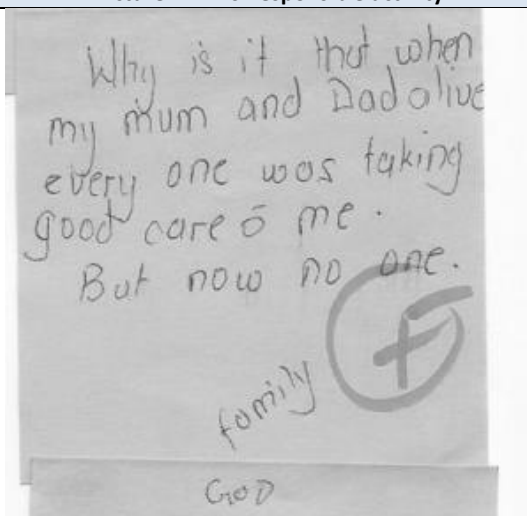 Why is it that when
my mum and Dad alive
every one was taking
good care o me.
But now no one.
F
family
GOD